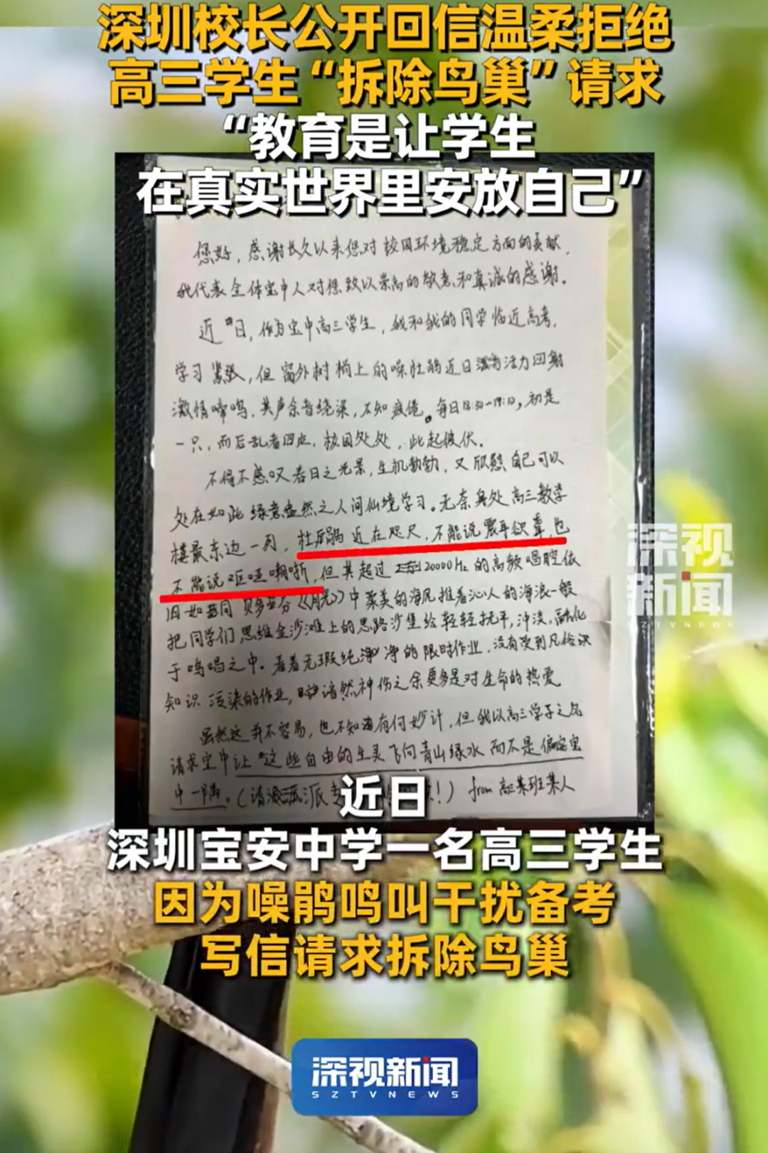 深圳校长公开回信温柔拒绝
高三学生“拆除鸟巢”请求
“教育是让学生
在真实世界里安放自己”
您好，感谢长久以来您对校园环境稳定方面的贡献，
我代表全体宝中人对您致以崇高的敬意和真诚的感谢。
近日，作为宝中高三学生，我和我的同学临近高考，
学习紧张，但窗外树梢上的噪杜鹃近日活力四射
激情啼鸣，其声余音绕梁，不知疲倦。每日，初是
一只，而后乱者四应，校园处处，此起彼伏。
不得不感叹春日之光景，生机勃勃，又欣慰自己可以
处在如此绿意盎然之人间仙境学习。无奈身处高三教学
楼最东边一列，杜鹃近在咫尺，不能说震耳欲聋，也
不能说呕哑嘲哳，但其超过20000Hz的高频唱腔依
旧如同贝多芬《月光》中柔美的海风推着沁人的海浪一般
把同学们思维金沙滩上的思路沙堡给轻轻抚平，冲淡，融化
于鸣唱之中。看着无瑕纯净的限时作业，没有受到凡俗识
知识污染的作业，黯然神伤之余更多是对生命的热爱
虽然这并不容易，也不知有何妙计，但我以高三学子之名
请求宝中让这些自由的生灵飞向青山绿水而不是偏安宝
中一隅。（请派！）from 高某班某人
深视
新闻
近日
深圳宝安中学一名高三学生
因为噪鹃鸣叫干扰备考
写信请求拆除鸟巢
深视新闻
SZTVNEWS